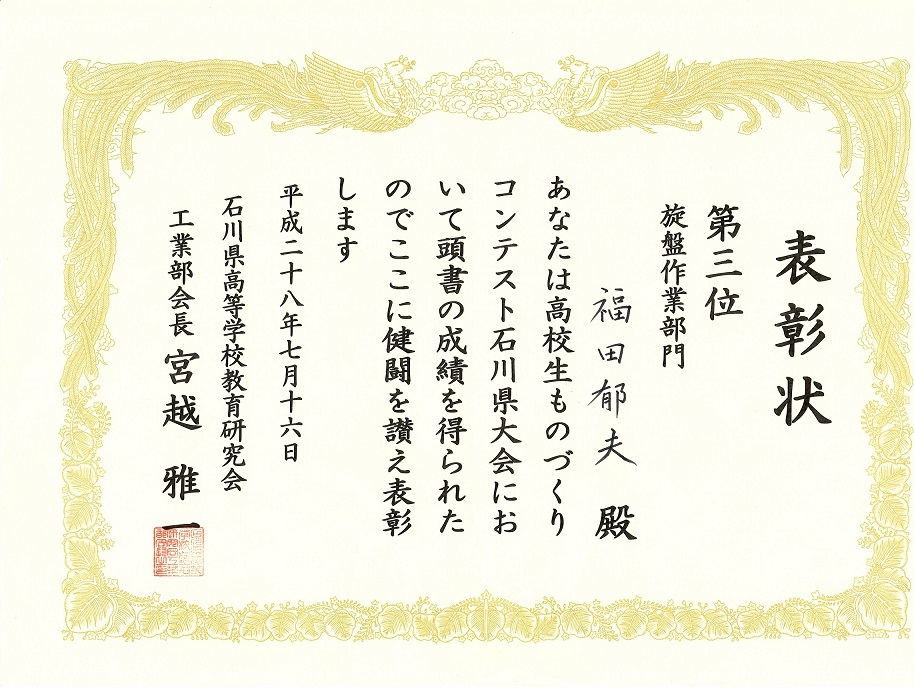 表彰状
第三位
旋盤作業部門
福田郁夫 殿
あなたは高校生ものづくり
コンテスト石川県大会にお
いて頭書の成績を得られた
のでここに健闘を讃え表彰
します
平成二十八年七月十六日
石川県高等学校教育研究会
工業部会長 宮越 雅一